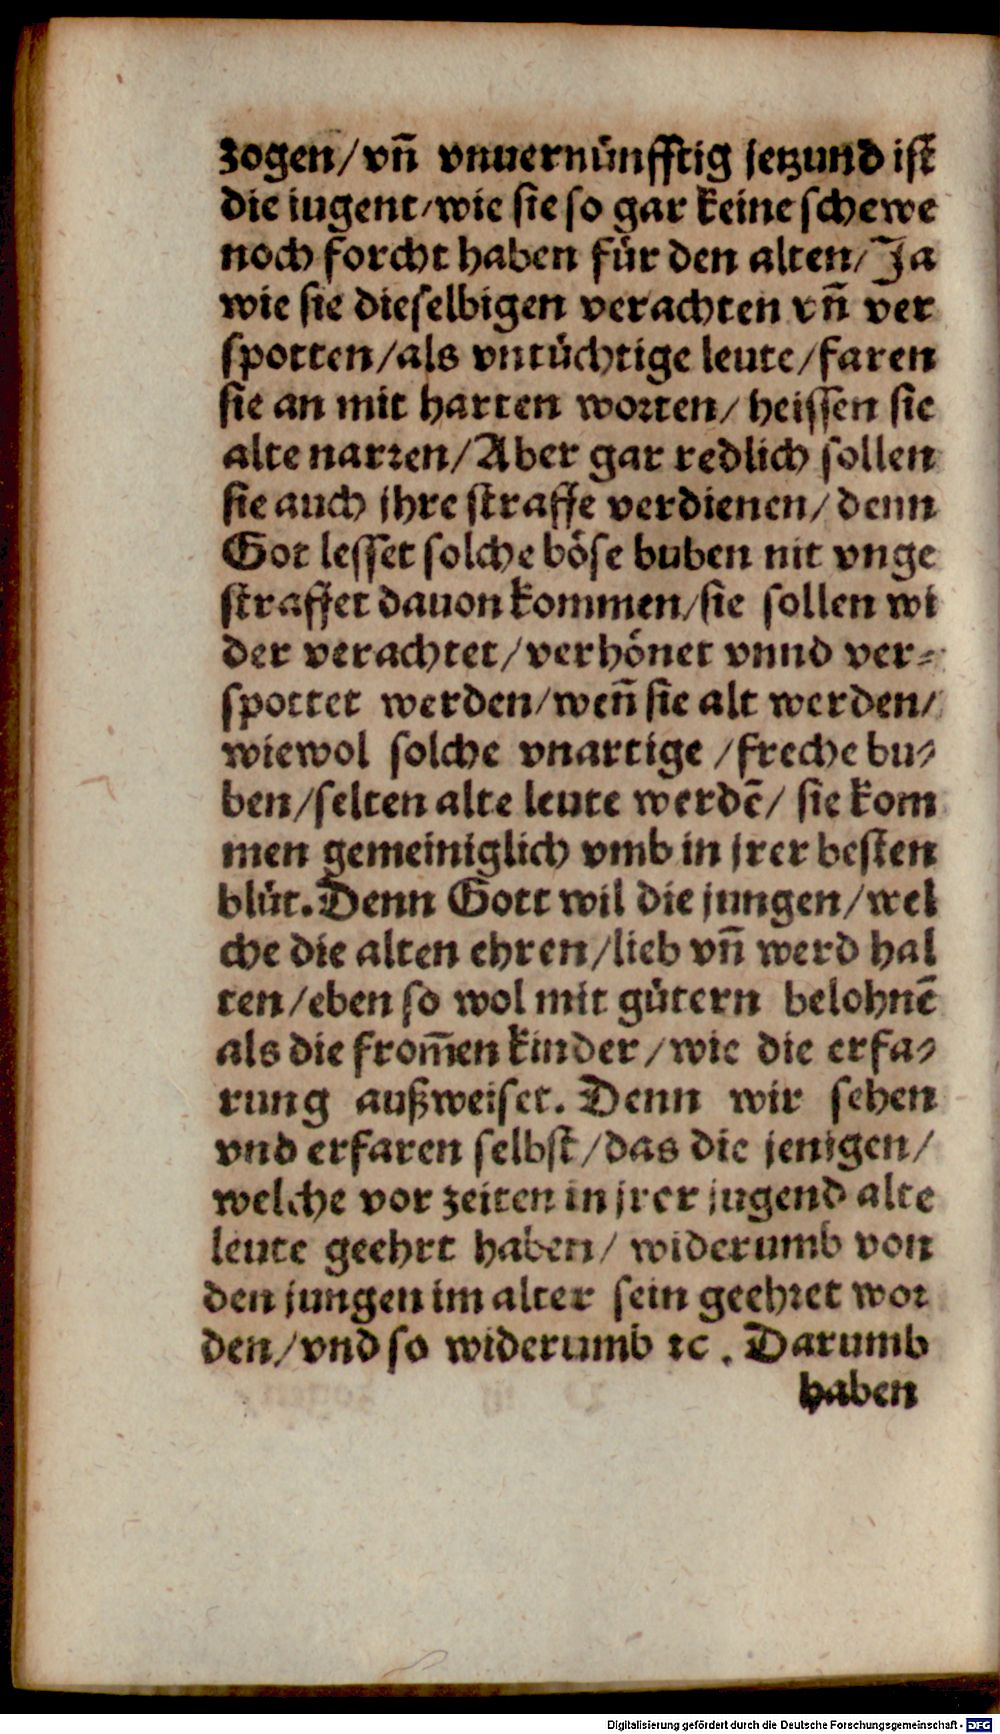 zogen/vñ vnuernünfftig jetzund ist
die iugent/wie sie so gar keine schewe
noch forcht haben für den alten/Ja
wie sie dieselbigen verachten vñ ver
spotten/als vntüchtige leute/faren
sie an mit harten worten/heissen sie
alte narren/Aber gar redlich sollen
sie auch jhre straffe verdienen/denn
Got lesset solche böse buben nit vnge
straffet dauon kommen/sie sollen wi
der verachtet/verhönet vnnd ver⸗
spottet werden/weñ sie alt werden/
wiewol solche vnartige /freche bu⸗
ben/selten alte leute werdē/ sie kom
men gemeiniglich vmb in jrer besten
blüt. Denn Gott wil die jungen/wel
che die alten ehren/lieb vñ werd hal
ten/eben so wol mit gütern belohnē
als die from̄en kinder/wie die erfa⸗
rung außweiset. Denn wir sehen
vnd erfaren selbst/das die jenigen/
welche vor zeiten in jrer jugend alte
leute geehrt haben/ widerumb von
den jungen im alter sein geehret wor
den/vnd so widerumb ꝛc. Darumb
haben
Digitalisierung gefördert durch die Deutsche Forschungsgemeinschaft - DFG